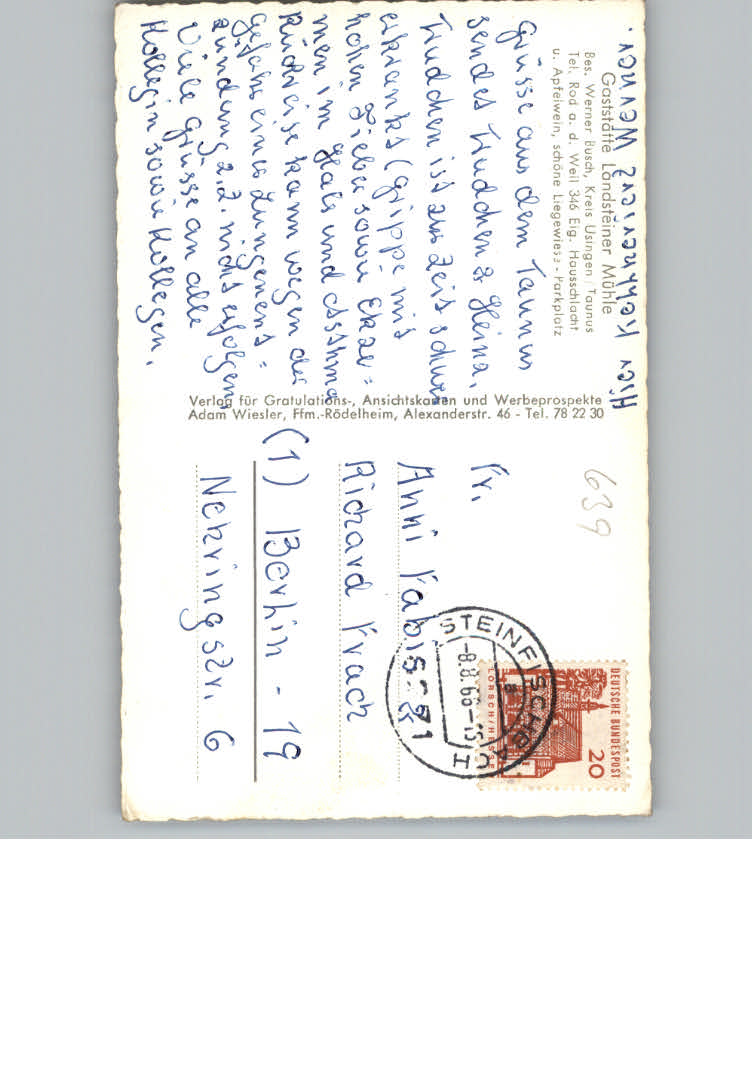 Gaststätte Landsteiner Mühle
Bes. Werner Busch, Kreis Usingen / Taunus
Tel. Rod a. d. Weil 346 Eig. Hausschlacht
u. Apfelwein, schöne Liegewiese - Parkplatz
Grüsse aus dem Taunus
sendet Trudchen & Heina.
Trudchen ist zur Zeit schwer
erkrankt (Grippe mit
hohen Fieber sowie Ekze=
men im Hals und Asthma
Rückreise kann wegen der
Gefahr einer Lungenent=
zündung z.Z. nicht erfolgen.
Viele Grüsse an alle
Kollegin sowie Kollegen.
Hier
Werner.
Verlag für Gratulations-, Ansichtskarten und Werbeprospekte
Adam Wiesler, Ffm.-Rödelheim, Alexanderstr. 46 - Tel. 78 22 30
639
Fr.
Anni
Richard
(1) Berlin - 19
Nehringstr. 6
DEUTSCHE BUNDESPOST
20
LORSCH/HESSEN
STEINFISCHBACH
-8.8.66-15
a